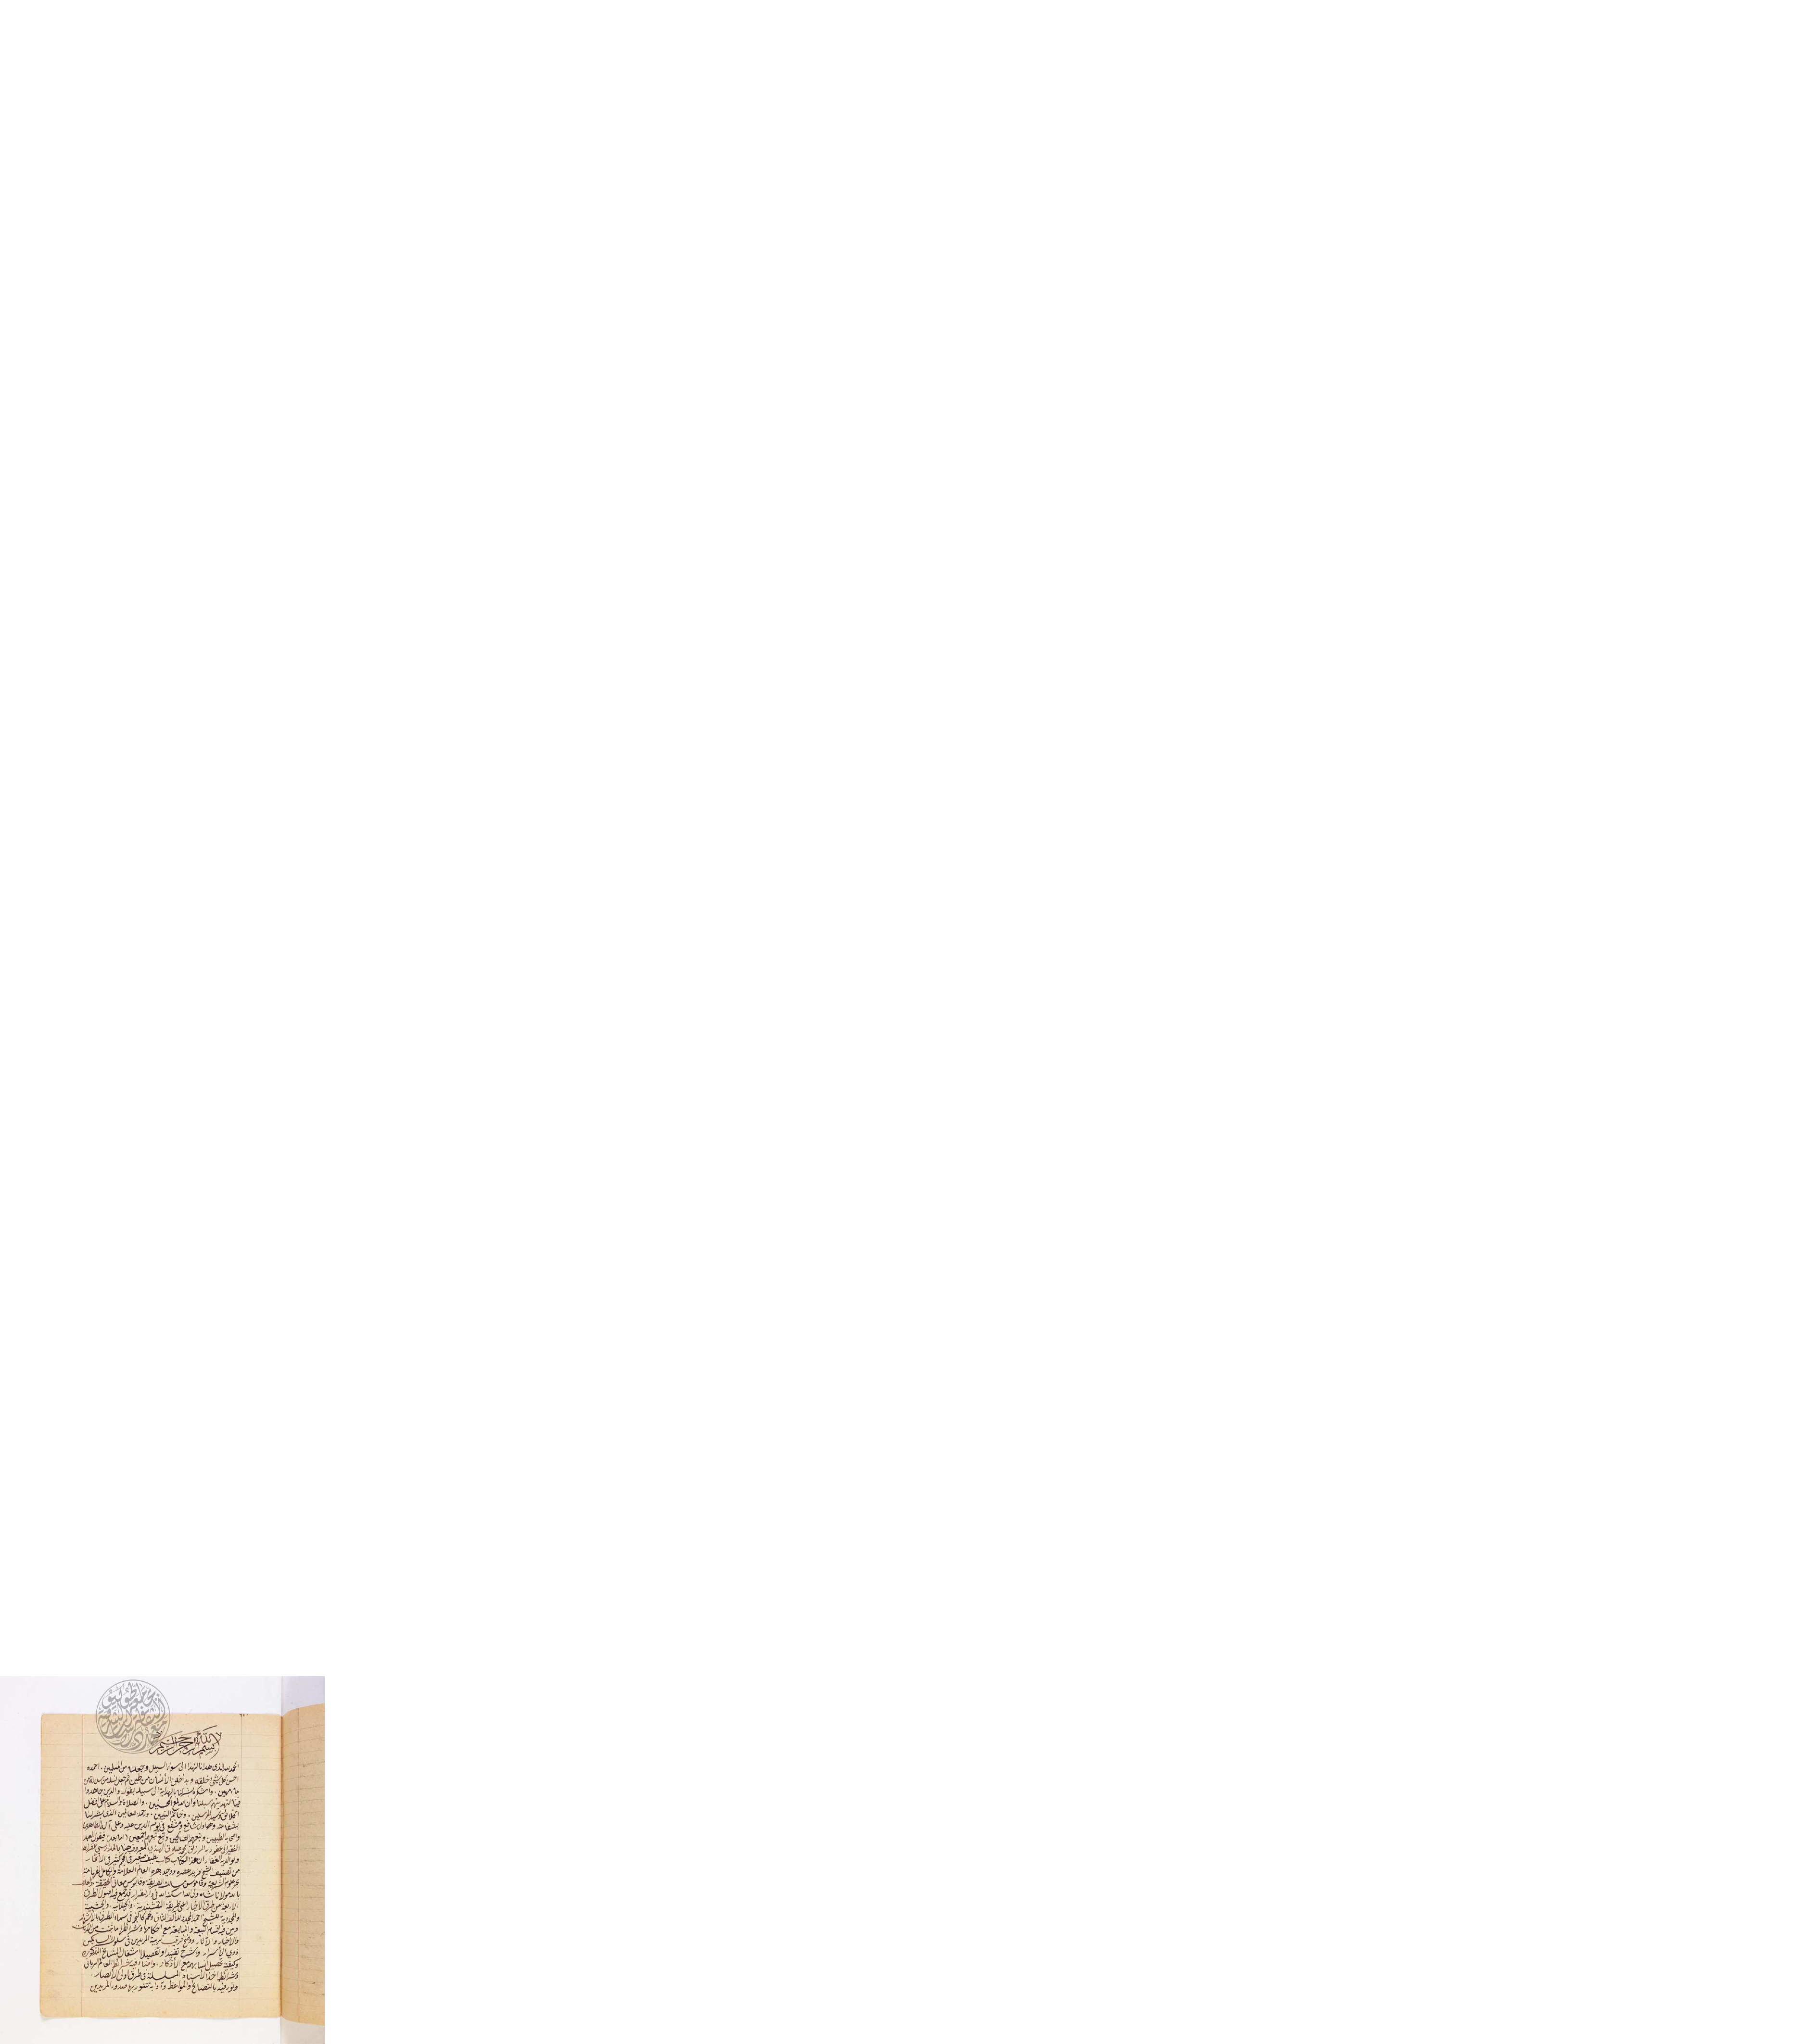 بسم الله الرحمن الرحيم
الحمد لله الذى هدانا لهذا الى سواء السبيل وجعلنا من المسلمين. احمده
احسن كل شئ خلقه وبدأ خلق الانسان من طين ثم جعل نسله من سلالة من
ماء مهين. واشكره بالهداية الى سبيله والذين جاهدوا
فينا لنهدينهم سبلنا وان الله لمع المحسنين. والصلاة والسلام على افضل
الخلائق وسيد المرسلين. وخاتم النبيين. ورحمة للعالمين الذى
بشفاعته وهو اول شافع ومشفع فى يوم الدين عليه وعلى آله الطاهرين
واصحابه الطيبين وتبعهم الصالحين وتبع تبعهم اجمعين (اما بعد) فيقول العبد
الفقير الى
ولوالديه الغفار ان هذا الكتاب كتاب صغير فى الحجم كثير فى
من تصنيف الشيخ فريد عصره ووحيد دهره العالم العلامة
علوم الشريعة وقاموس مسالك الطريقة وقابوس معانى الحقيقة
بالله مولانا شاه ولى الله اسكنه الله فى دار القرار قد جمع فيه اصول الطرق
الاربعة من طرق الاخيار اعنى طريقة النقشبندية والجيلانية والچشتية
والمجددية للشيخ احمد المجدد للالف الثانى وهم كالنجم فى سماء الطرق
وبين فيه اقسام البيعة والمبايعة مع احكامها وشرائطها
والاخبار والآثار ووضح ترتيب تربية المريدين فى سلوك السالكين
ذوى الأسرار واشرح تفصيلا اشغال المشائخ
وكيفية تحصيل مع الأذكار. شرائط العالم الربانى
وشرائط اخذ الاسناد المسلسلة فى طرق اولى الأبصار.
ونور فيه بالنصائح والمواعظ وآدابه تتنور بها صدور المريدين